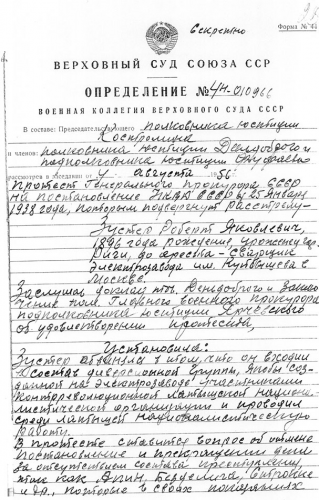 Секретно
Форма № 44
ВЕРХОВНЫЙ СУД СОЮЗА ССР
ОПРЕДЕЛЕНИЕ № 4н-010966
ВОЕННАЯ КОЛЛЕГИЯ ВЕРХОВНОГО СУДА СССР
В составе: Председательствующего полковника юстиции
Костромина
и членов: полковника юстиции Дендобного и
подполковника юстиции
рассмотрела в заседании от 4 августа 1956 г.
протест Генерального прокурора СССР
на постановление НКВД СССР от 25 января
1938 года, которым подвергнут расстрелу
Зустер Роберт Яковлевич,
1896 года рождения, уроженец гор.
Риги, до ареста – сварщик
Электрозавода им. Куйбышева г.
Москве.
Заслушав доклад тов. Дендобного и заклю-
чение пом. Главного военного прокурора
подполковника юстиции
об удовлетворении протеста,
Установила:
Зустер обвинялся в том, что он входил
в состав диверсионной группы, якобы соз-
данной на Электрозаводе участниками
контрреволюционной латышской национа-
листической организации и проводил
среди латышей националистическую
работу.
В протесте ставится вопрос об отмене
постановления и прекращении дела
за отсутствием состава преступления,
так как
и др., которые в своих показаниях